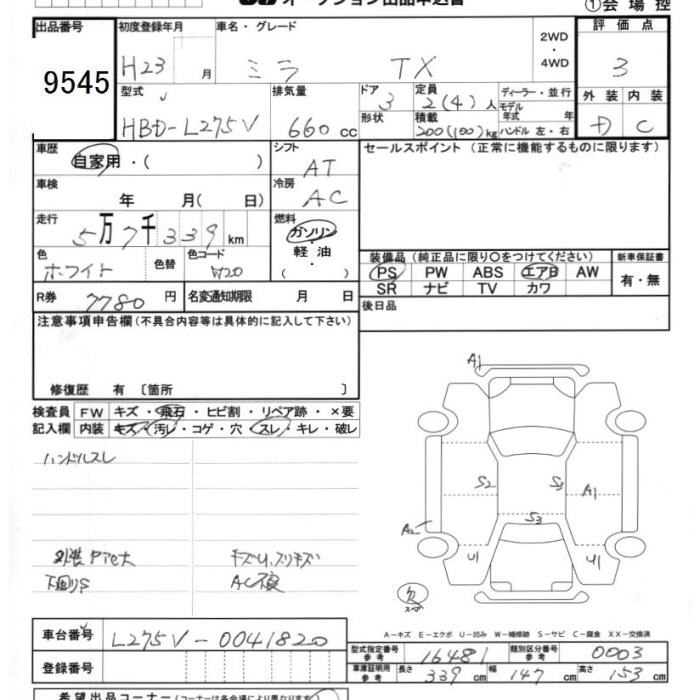 オークション出品申込書
①会場控
出品番号 初度登録年月 車名・グレード 2WD・4WD 評価点
9545 H23 月 ミラ TX 3
型式 排気量 ドア 定員 ディーラー・並行 外装 内装
HBD-L275V 660 cc 3 2(4)人 モデル年式 年 D C
形状 積載 200(100)kg ハンドル 左・右
車歴 シフト セールスポイント(正常に機能するものに限ります)
自家用・( ) AT
車検 年 月(日) 冷房 AC
走行 燃料
5万7千339km ガソリン・軽油・( )
色 色替 色コード
ホワイト W20
装備品(純正品に限り○をつけてください) 新車保証書
PS PW ABS エアB AW 有・無
SR ナビ TV カワ
R券 7780円 名変通知期限 月 日
後日品
注意事項申告欄(不具合内容等は具体的に記入して下さい)
修復歴 有 〔箇所 〕
検査員 FW キズ・飛石・ヒビ割・リペア跡・×要
記入欄 内装 キズ・汚レ・コゲ・穴・スレ・キレ・破レ
ハンドルスレ
外装Pアセ大 キズU.スリキズ
下回りS AC不良
A1
S2 S3 A1
S3
A2
U1 U1
欠
スペア
A-キズ E-エクボ U-凹み W-補修跡 S-サビ C-腐食 XX-交換済
車台番号 L275V-0041820
登録番号
型式指定番号 参考 16481 類別区分番号 参考 0003
車庫証明用 参考 長さ 339cm 幅 147cm 高さ 153cm
希望出品コーナー(コーナーは各会場により異なります)